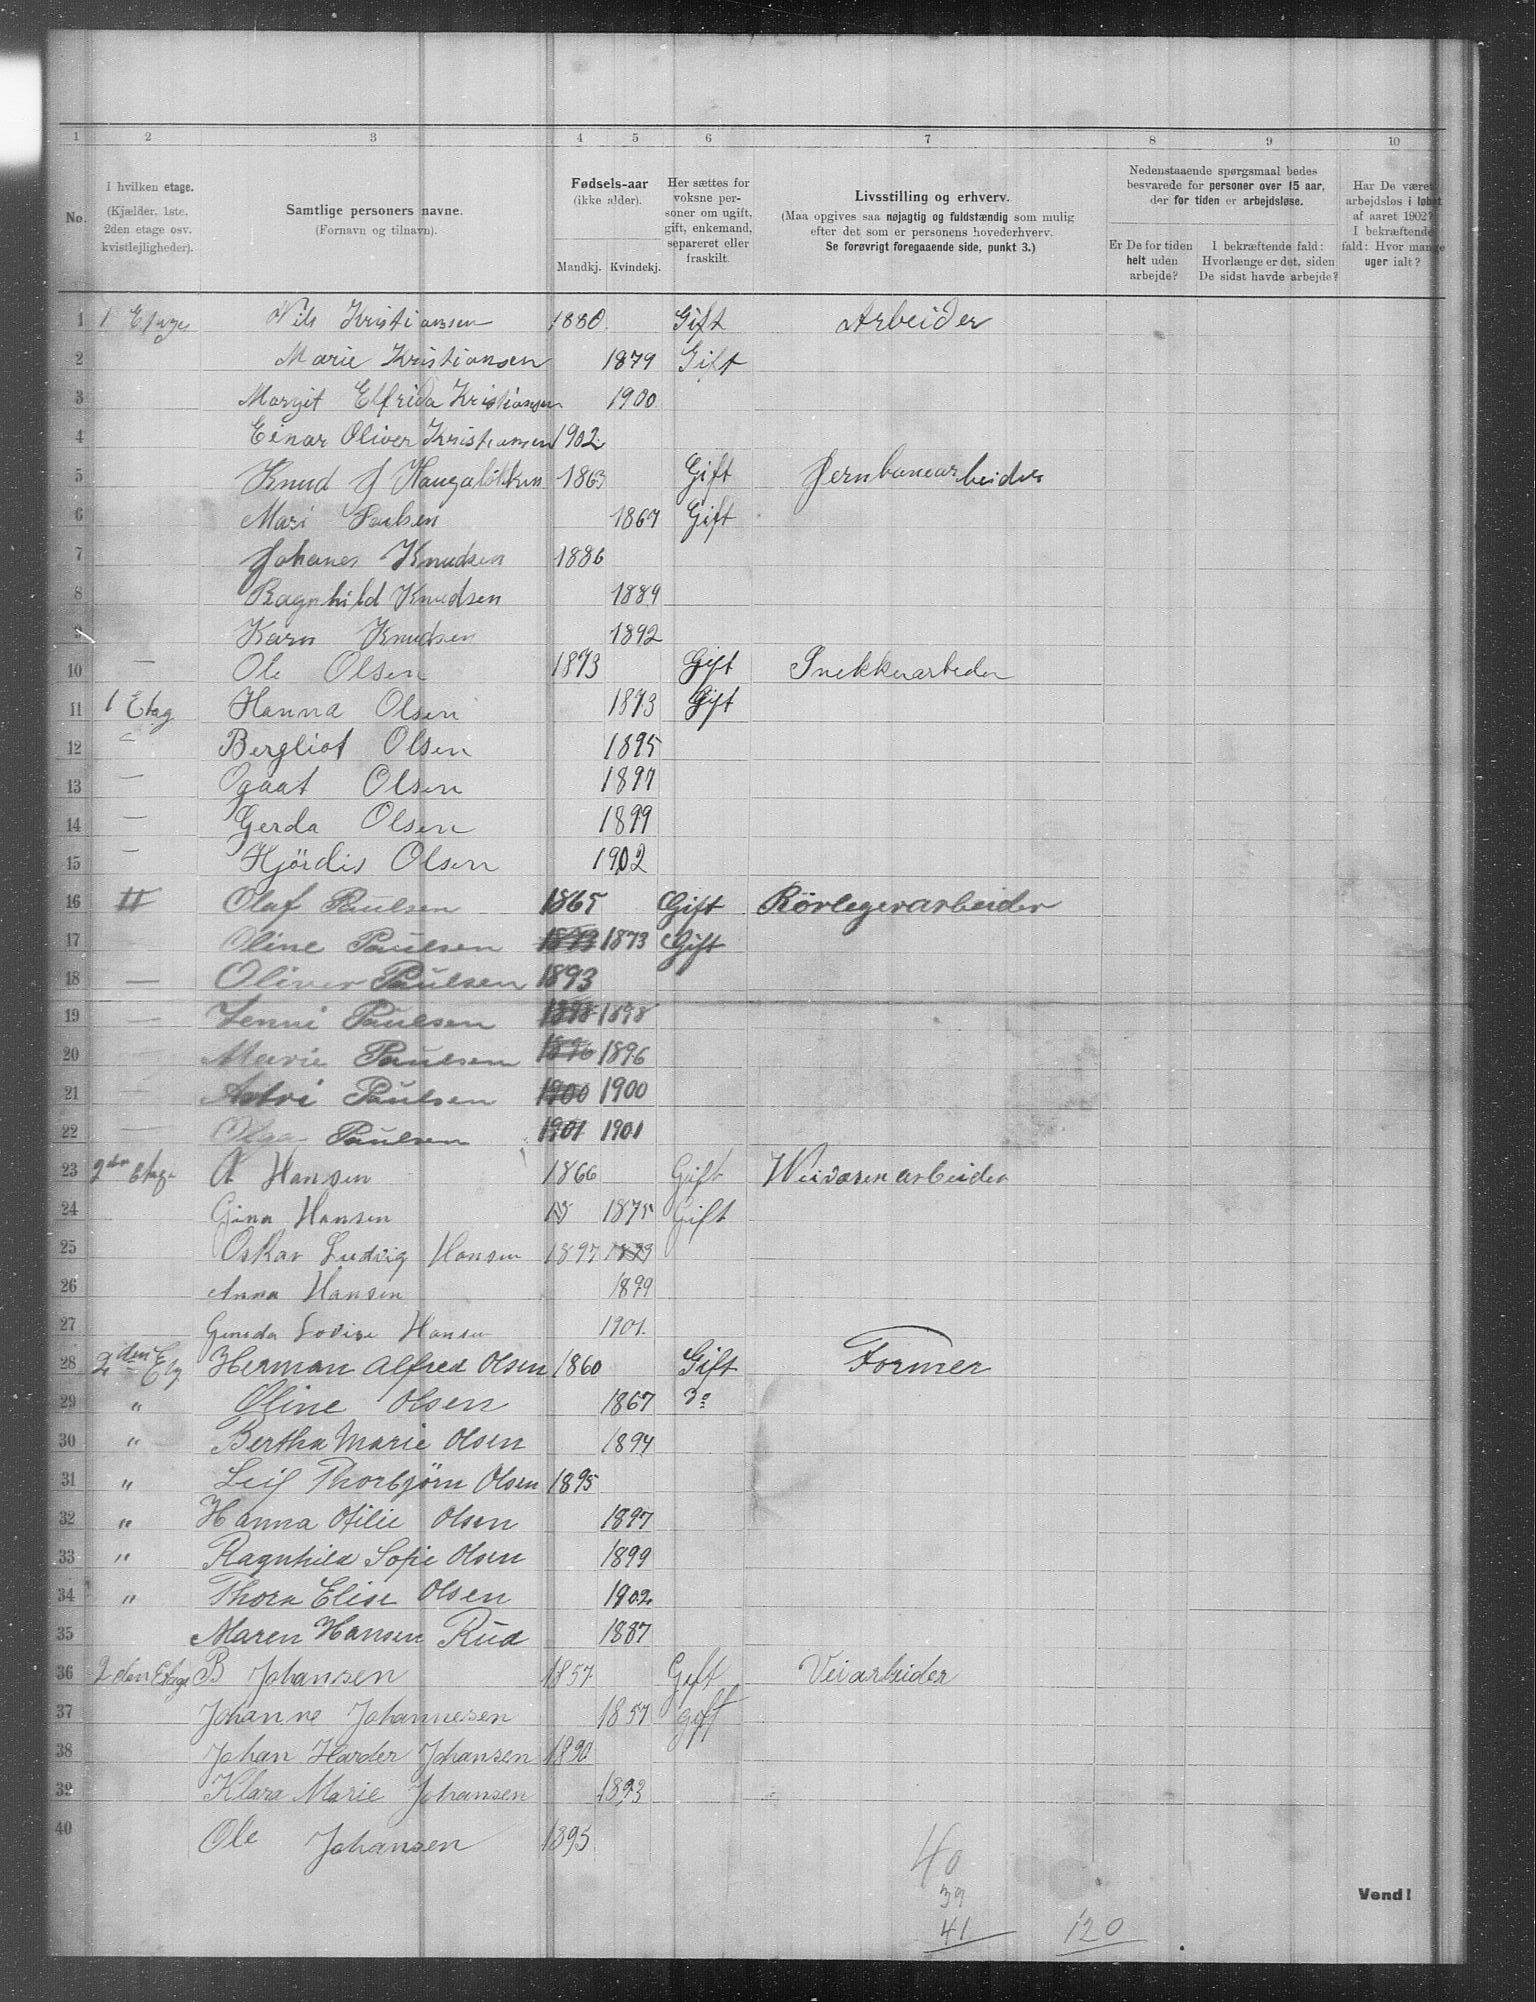 1 2 3 4 5 6 7 8 9 10
No.
I hvilken etage.
(Kjælder, 1ste.
2den etage osv.
kvistlejligheder).
Samtlige personers navne.
(Fornavn og tilnavn).
Fødsels-aar
(ikke alder).
Mandkj. Kvindekj.
Her sættes for
voksne per-
soner om ugift,
gift, enkemand,
separeret eller
fraskilt.
Livsstilling og erhverv.
(Maa opgives saa nøjagtig og fuldstændig som mulig
efter det som er personens hovederhverv.
Se forøvrigt foregaaende side, punkt 3.)
Nedenstaaende spørgsmaal bedes
besvarede for personer over 15 aar,
der for tiden er arbejdsløse.
Er De for tiden
helt uden
arbejde?
I bekræftende fald:
Hvorlænge er det, siden
De sidst havde arbejde?
Har De været
arbejdsløs i løbet
af aaret 1902?
I bekræftende
fald: Hvor mange
uger ialt?
1 1 Etage Nils Kristiansen 1880 Gift Arbeider
2 Marie Kristiansen 1879 Gift
3 Margit Elfrida Kristiansen 1900
4 Einar Oliver Kristiansen 1902
5 Knud J Haugaløkken 1863 Gift Jernbanearbeider
6 Mari Paulsen 1867 Gift
7 Johanes Knudsen 1886
8 Ragnhild Knudsen 1889
9 Karn Knudsen 1892
10 — Ole Olsen 1873 Gift Snekkerarbeder
11 1 Etag Hanna Olsen 1873 Gift
12 — Bergliot Olsen 1895
13 — Ogaat Olsen 1897
14 — Gerda Olsen 1899
15 — Hjördis Olsen 1902
16 Olaf Paulsen 1865 Gift Rörlegerarbeider
17 — Oline Paulsen 1873 1873 Gift
18 — Oliver Paulsen 1893
19 — Jenni Paulsen 1898 1898
20 — Marie Paulsen 1896 1896
21 — Astri Paulsen 1900 1900
22 — Olga Paulsen 1901 1901
23 2den Etage A Hansen 1866 Gift Veivæsenarbeider
24 Gina Hansen 18 1875 Gift
25 Oskar Ludvig Hansen 1897 1899
26 Anna Hansen 1899
27 Lovise Hansen 1901
28 2den Etg Herman Alfred Olsen 1860 Gift Former
29 " Oline Olsen 1867 do
30 " Bertha Marie Olsen 1894
31 " Leif Thorbjørn Olsen 1895
32 " Hanna Otilie Olsen 1897
33 " Ragnhild Sofie Olsen 1899
34 " Thora Elise Olsen 1902
35 Maren Hansen Rud 1887
36 2den Etage B Johansen 1857 Gift Veiarbeider
37 Johanne Johannesen 1857 gift
38 Johan Harder Johansen 1890
39 Klara Marie Johansen 1893
40 Ole Johansen 1895
40
39
41 120
Vend!